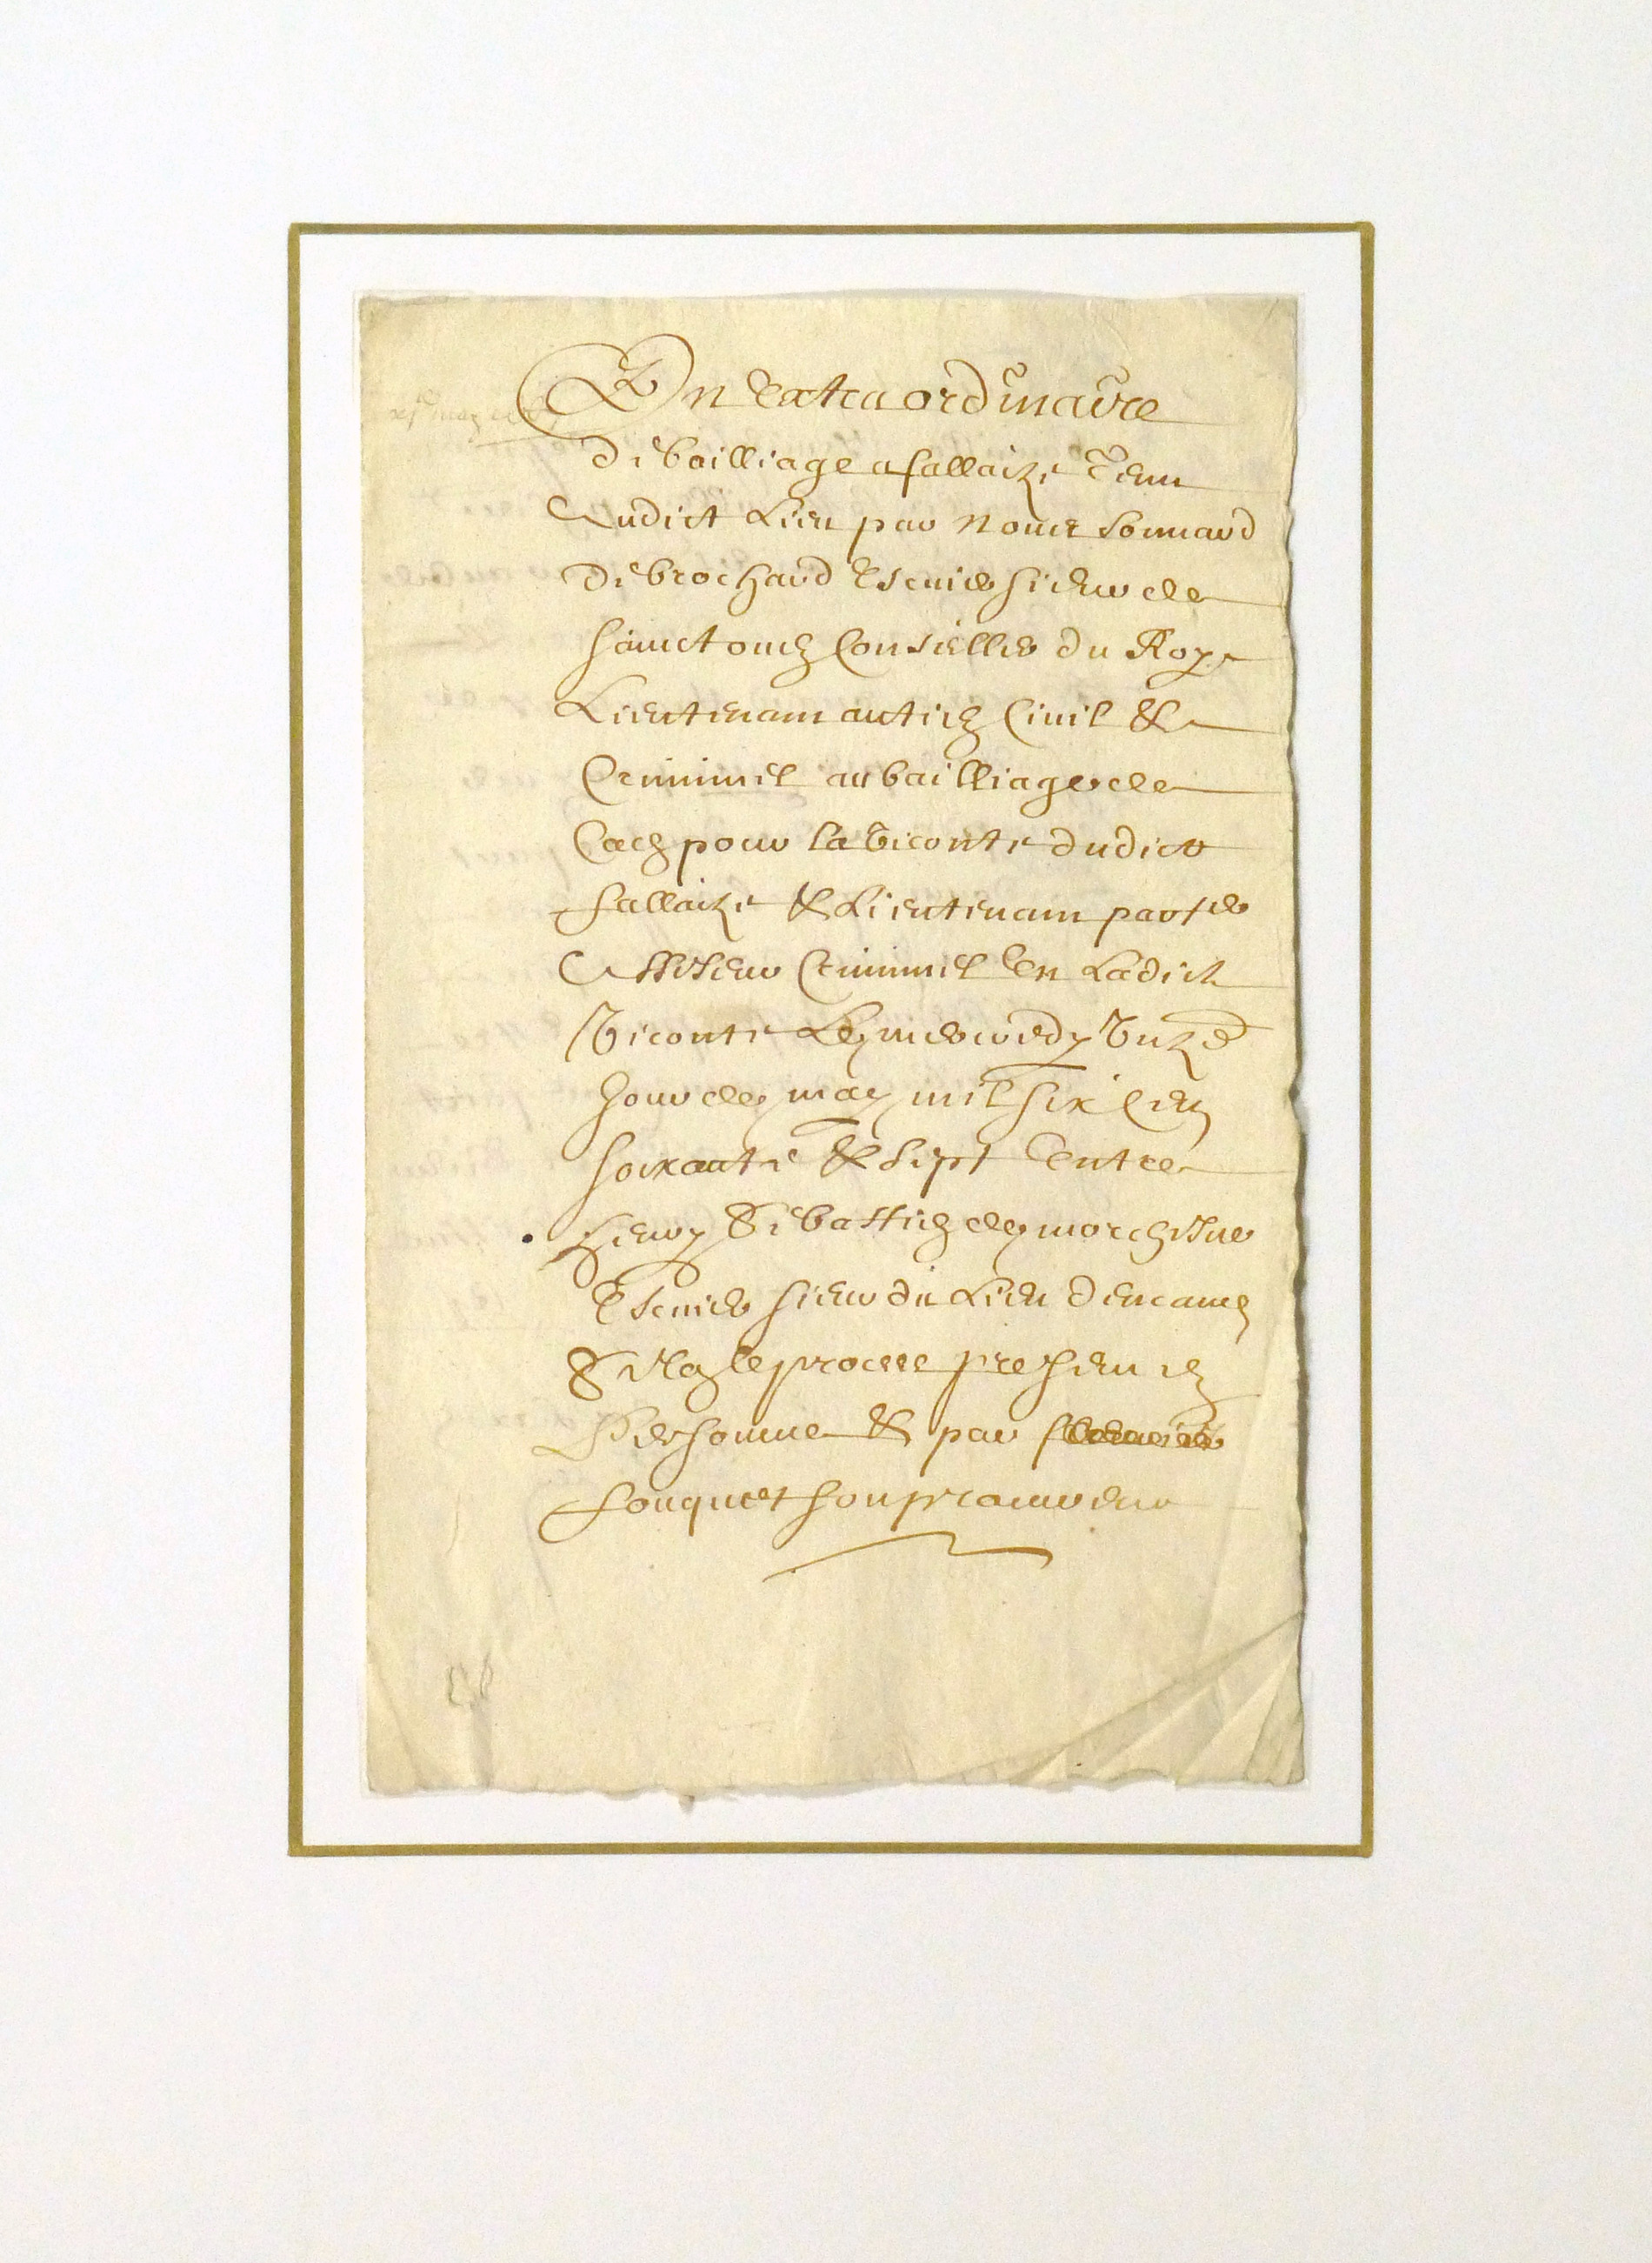 En Lextraordinaire
de bailliage a fallaize Tenu
Audict Lieu par Nous
de brochard Escuier sieur de
sainct ouen Conseiller du Roy
Lieutenant antien Civil &
Criminel au bailliage de
Caen pour la Viconte dudict
fallaize & Lieutenant parter
Assesseur Criminel en Ladicte
Viconte Le mercredy Unze
Jour de may mil six Cens
soixante & sept Entre
Henry Sebastien de morchesne
Escuier sieur du Lieu demandeur
le proces present en
Personne & par
fouquet son procureur